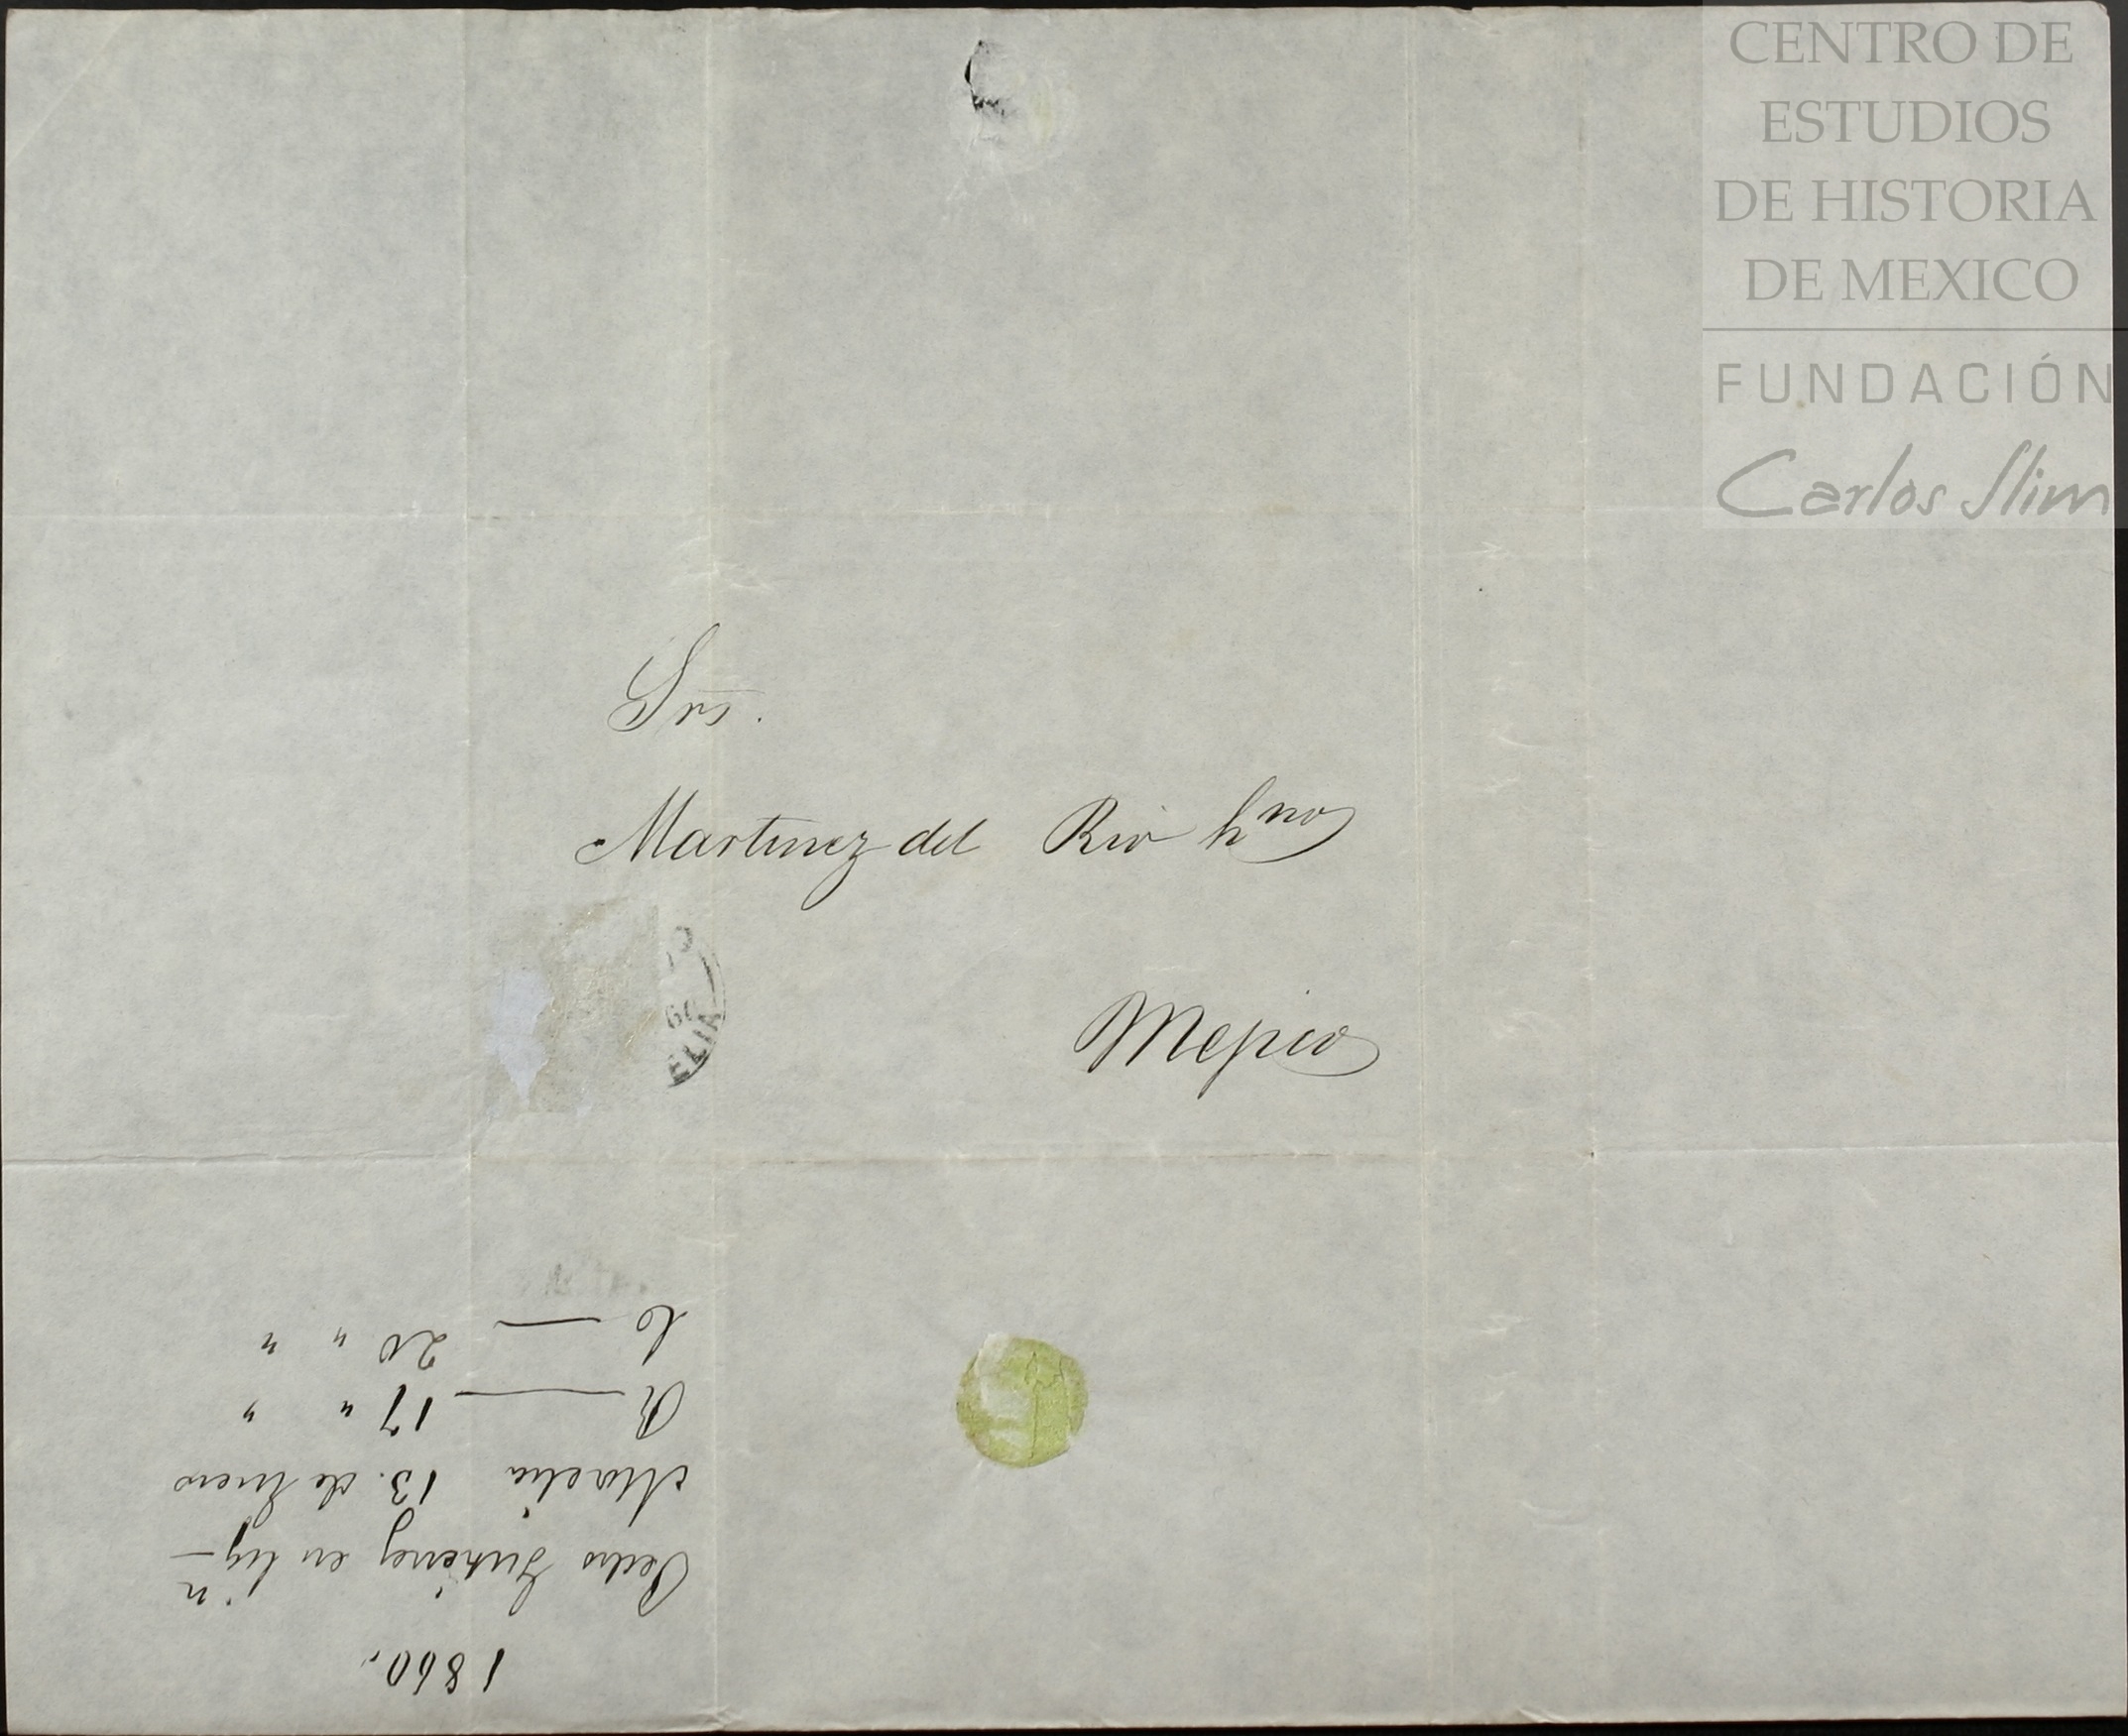 CENTRO DE
ESTUDIOS
DE HISTORIA
DE MEXICO
FUNDACIÓN
Carlos Slim
Srs.
Martinez del Rio hnos
Mejico
60
ELIA
1860.
Pedro Gutierrez en liqn
Morelia 13. de Enero
R 17 " "
C 20 " "